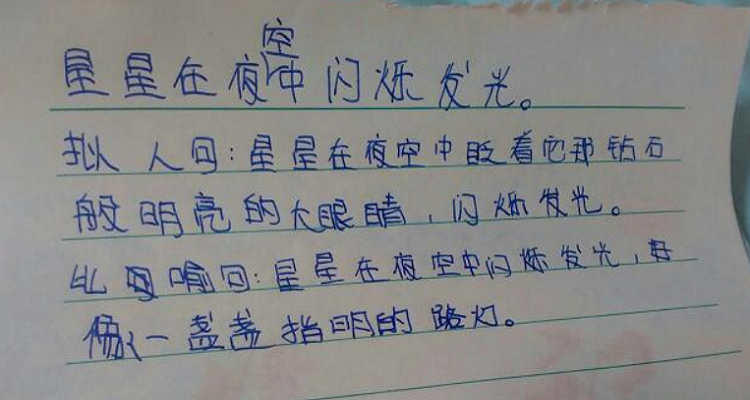 星星在夜空中闪烁发光。
拟人句:星星在夜空中眨着它那钻石
般明亮的大眼睛,闪烁发光。
比喻句:星星在夜空中闪烁发光,好
像一盏盏指明的路灯。